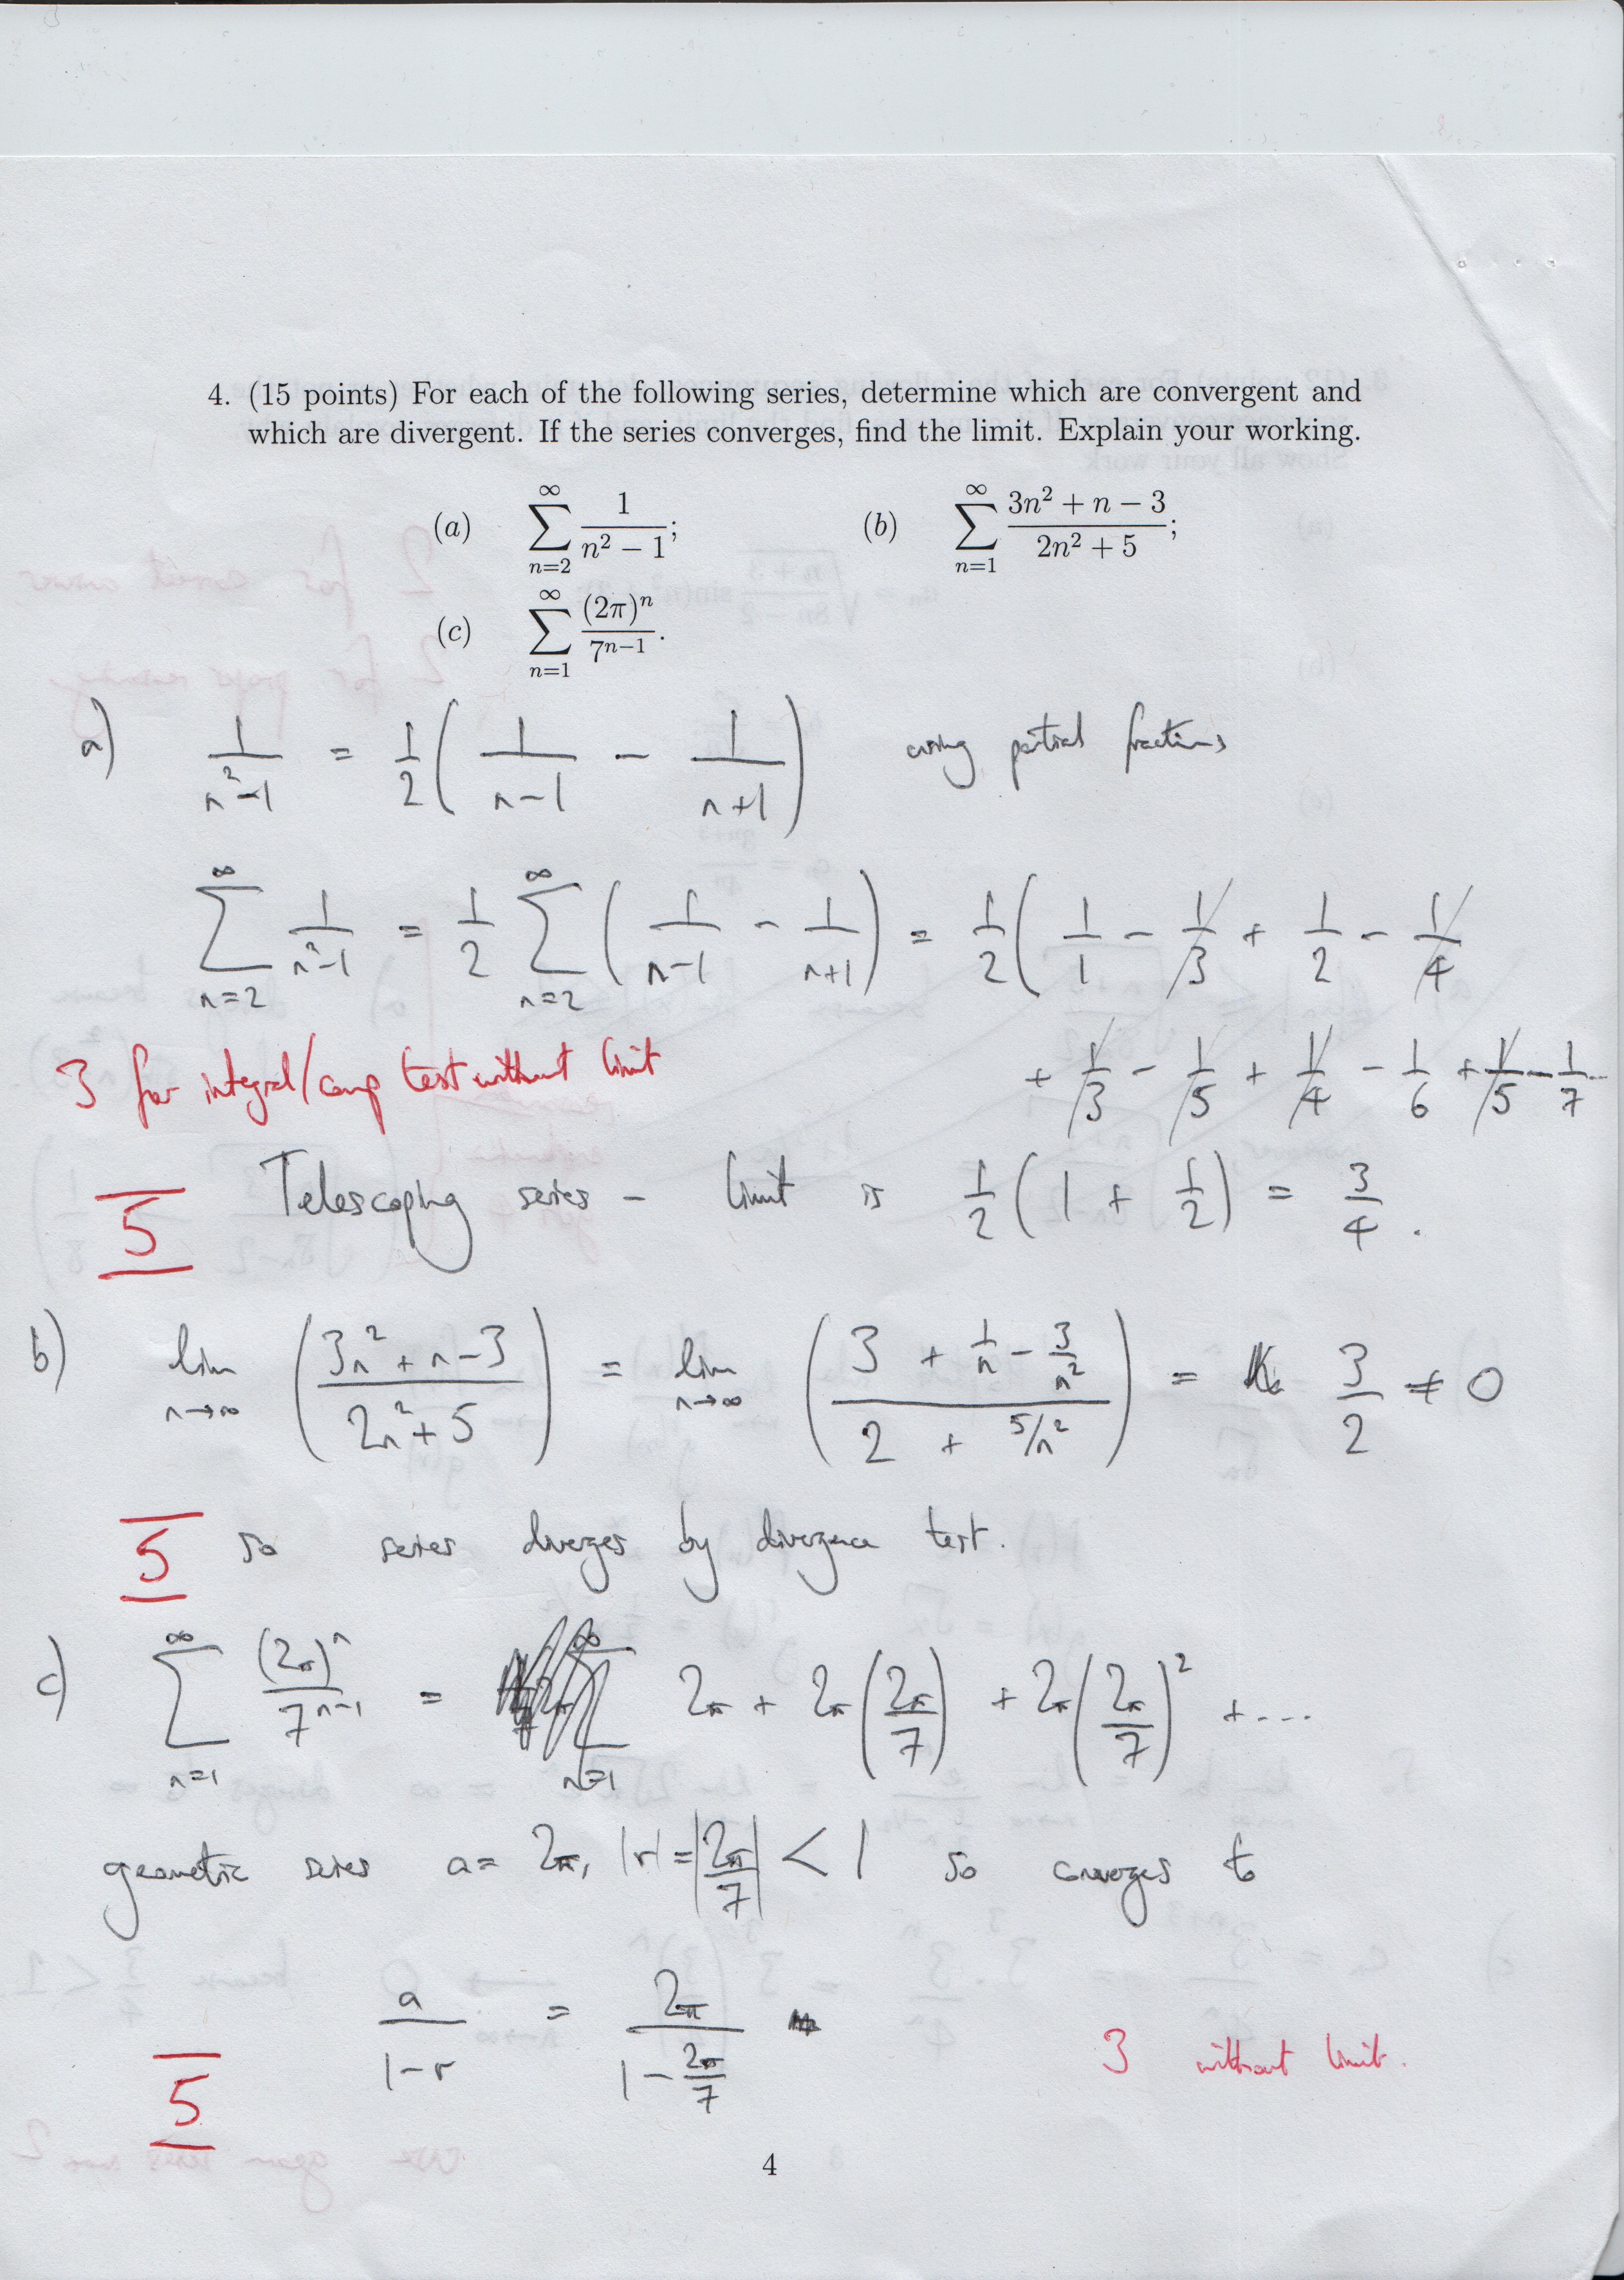 4. (15 points) For each of the following series, determine which are convergent and
which are divergent. If the series converges, find the limit. Explain your working.
(a) ∑_{n=2}^{∞} 1/(n² − 1); (b) ∑_{n=1}^{∞} (3n² + n − 3)/(2n² + 5);
(c) ∑_{n=1}^{∞} (2π)ⁿ/7ⁿ⁻¹.
a) 1/(n²−1) = 1/2 ( 1/(n−1) − 1/(n+1) ) using partial fractions
∑_{n=2}^{∞} 1/(n²−1) = 1/2 ∑_{n=2}^{∞} ( 1/(n−1) − 1/(n+1) ) = 1/2 ( 1/1 − 1/3 + 1/2 − 1/4
+ 1/3 − 1/5 + 1/4 − 1/6 + 1/5 − 1/7 ...
3 for integral/comp test without limit
5 Telescoping series – limit is 1/2 ( 1 + 1/2 ) = 3/4 .
b) lim_{n→∞} ( (3n² + n − 3)/(2n² + 5) ) = lim_{n→∞} ( (3 + 1/n − 3/n²)/(2 + 5/n²) ) = 3/2 ≠ 0
5 so series diverges by divergence test.
c) ∑_{n=1}^{∞} (2π)ⁿ/7ⁿ⁻¹ = 2π + 2π (2π/7) + 2π (2π/7)² + ...
geometric series a = 2π, |r| = |2π/7| < 1 so converges to
a/(1−r) = 2π/(1 − 2π/7)
3 without limit.
5
4